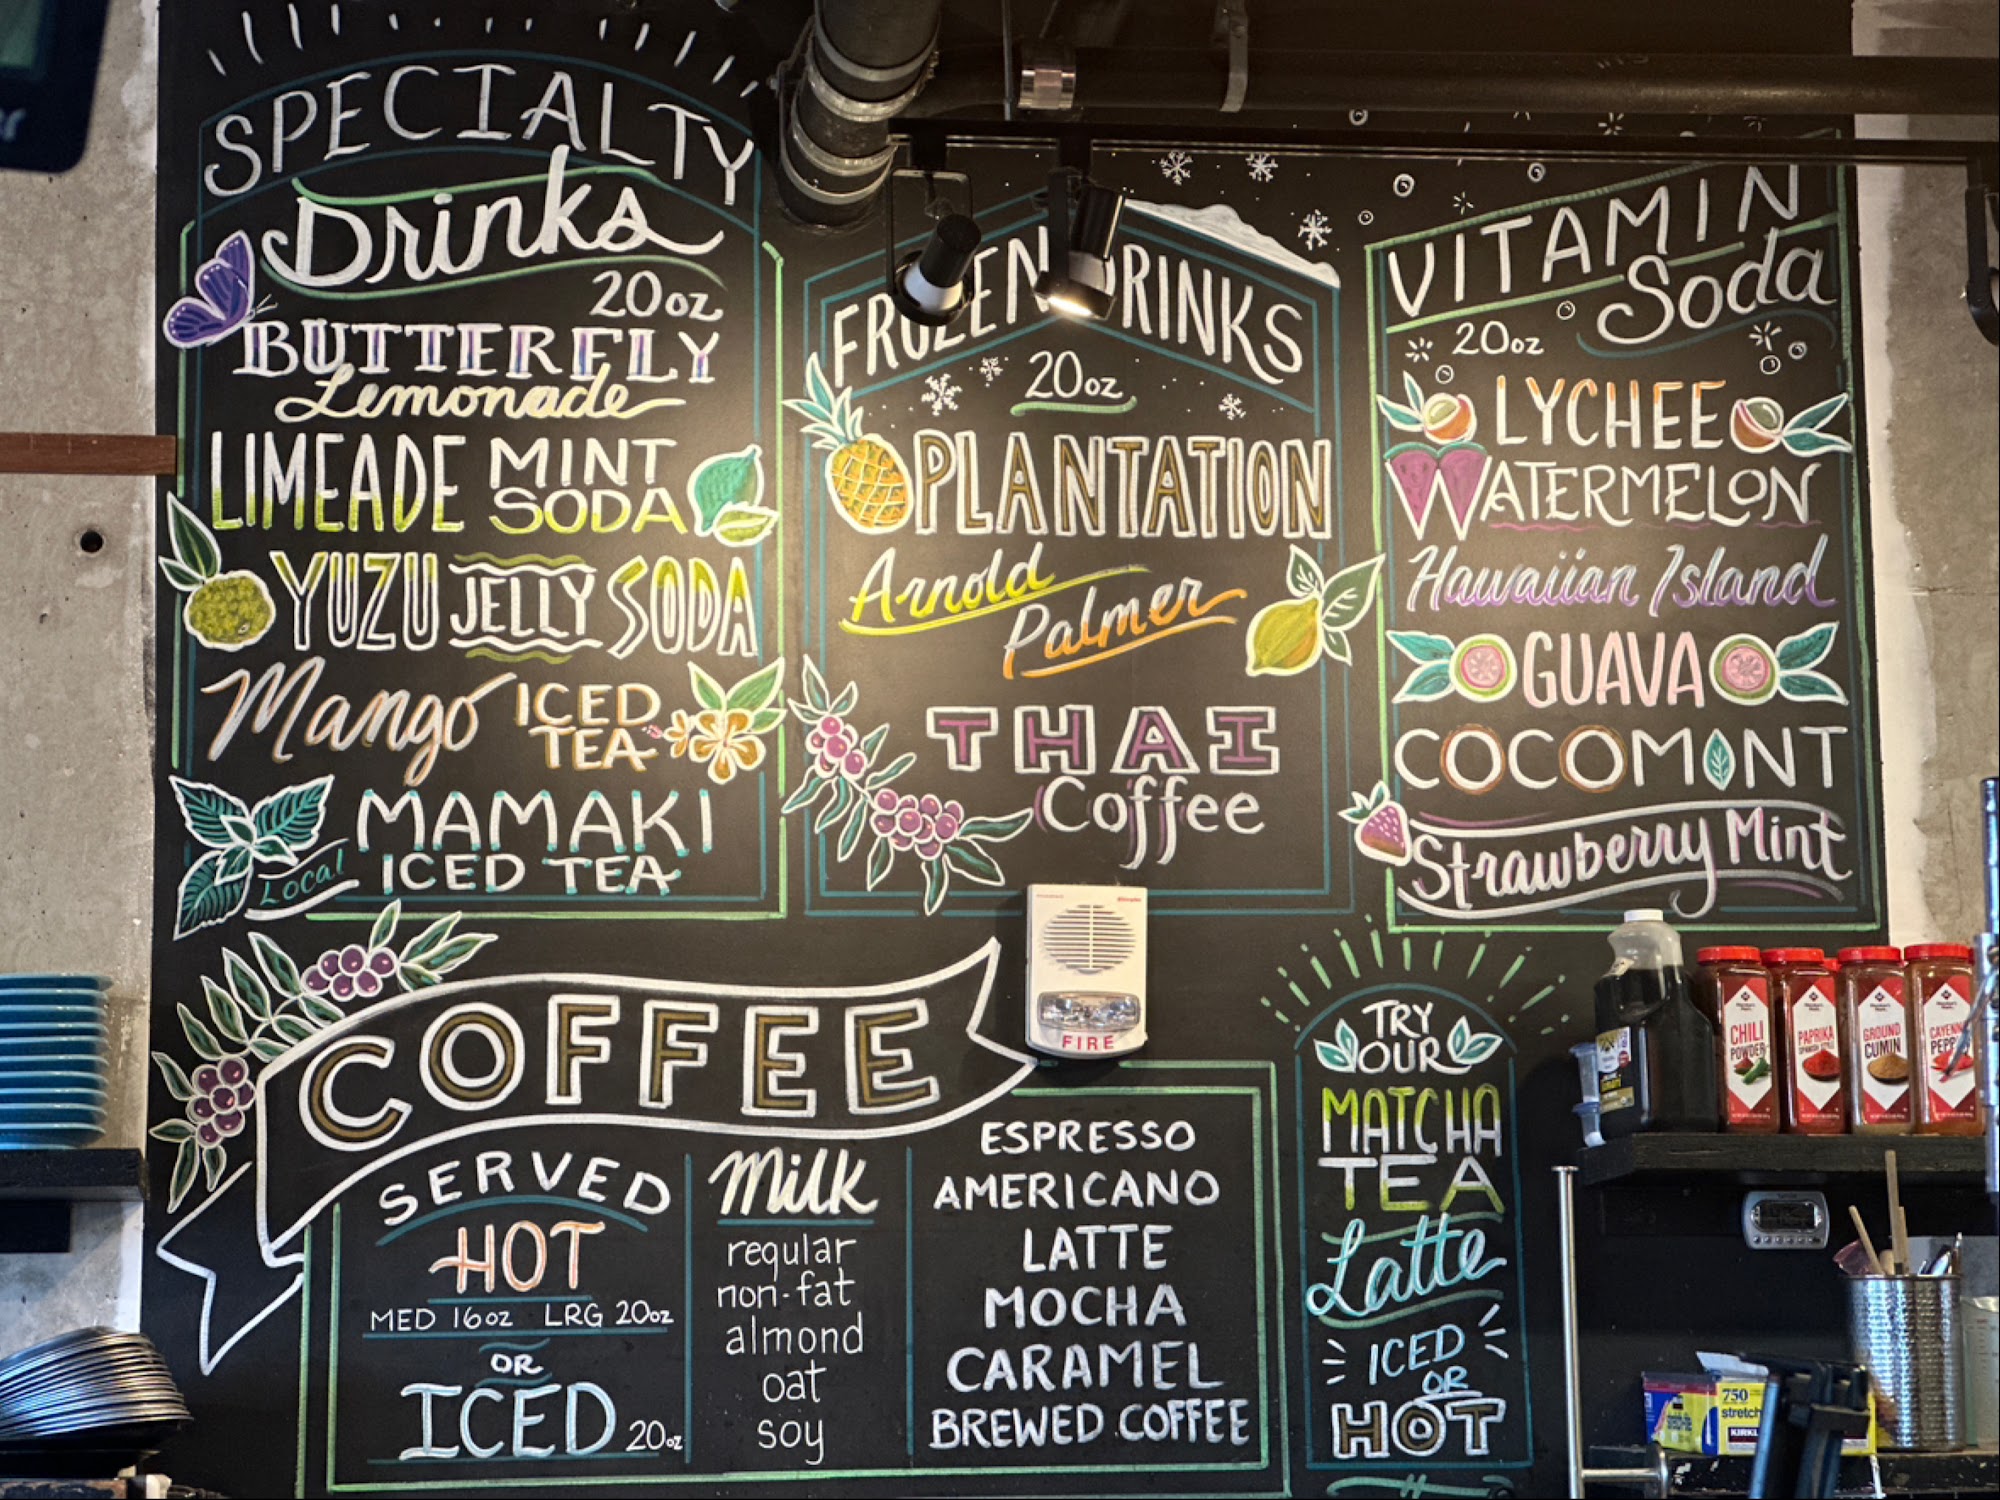 SPECIALTY
Drinks
20oz
BUTTERFLY
Lemonade
LIMEADE MINT
SODA
YUZU JELLY SODA
Mango ICED
TEA
MAMAKI
Local ICED TEA
FROZEN DRINKS
20oz
PLANTATION
Arnold
Palmer
THAI
Coffee
VITAMIN
Soda
20oz
LYCHEE
WATERMELON
Hawaiian Island
GUAVA
COCOMINT
Strawberry Mint
FIRE
COFFEE
SERVED
HOT
MED 16oz LRG 20oz
OR
ICED 20oz
Milk
regular
non-fat
almond
oat
soy
ESPRESSO
AMERICANO
LATTE
MOCHA
CARAMEL
BREWED COFFEE
TRY
OUR
MATCHA
TEA
Latte
ICED
OR
HOT
CHILI
POWDER
PAPRIKA
GROUND
CUMIN
750